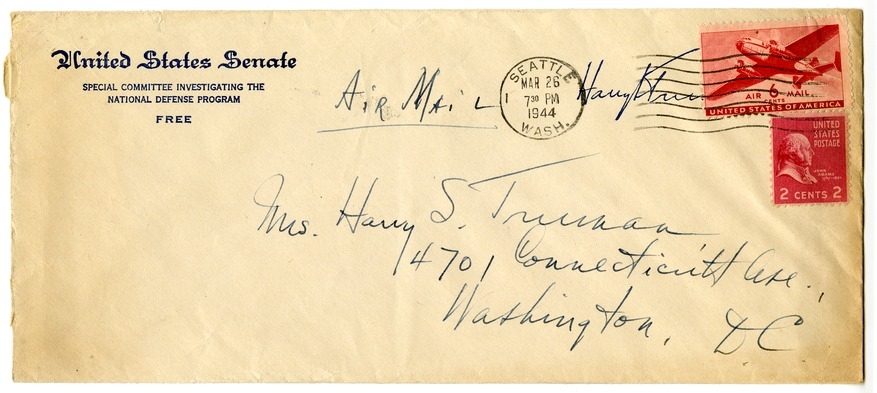 United States Senate
SPECIAL COMMITTEE INVESTIGATING THE
NATIONAL DEFENSE PROGRAM
FREE
Air Mail
SEATTLE
1
MAR 26
7 30 PM
1944
WASH.
Harry
AIR 6 MAIL
CENTS
UNITED STATES OF AMERICA
UNITED
STATES
POSTAGE
JOHN
ADAMS
2 CENTS 2
Mrs. Harry S. Truman
4701 Connecticutt Ave.,
Washington, D.C.